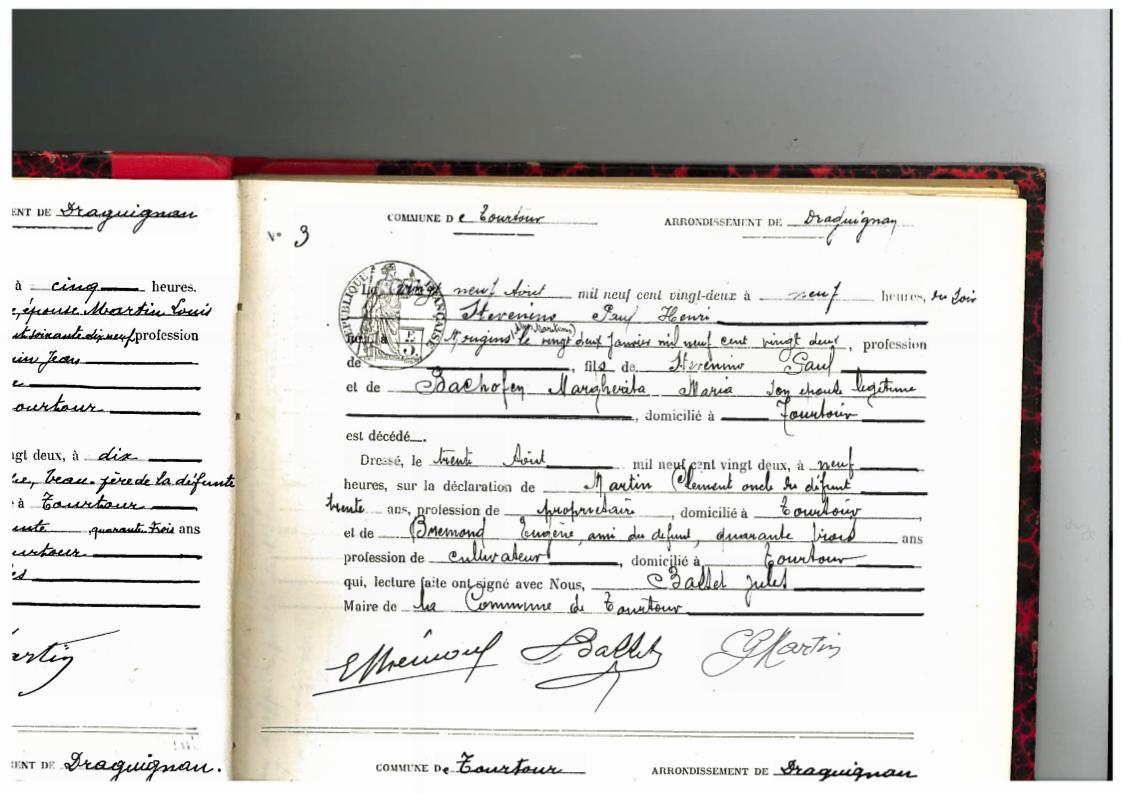 ENT DE Draguignan
à cinq heures.
, épouse Martin Louis
soixante dix neuf, profession
Jean
ourtour
ngt deux, à dix
, beau-père de la défunte
à Tourtour
quarante trois ans
ourtour
artin
ENT DE Draguignan.
COMMUNE De Tourtour ARRONDISSEMENT DE Draguignan
N° 3
RÉPUBLIQUE FRANÇAISE
Le vingt neuf Août mil neuf cent vingt-deux à neuf heures, du soir
Stevenino Paul Henri
né à Mougins (Alpes Maritimes) le vingt deux janvier mil neuf cent vingt deux, profession
de , fils de Stevenino Paul
et de Bachofen Margherita Maria son épouse légitime
, domicilié à Tourtour
est décédé.
Dressé, le trente Août mil neuf cent vingt deux, à neuf
heures, sur la déclaration de Martin Clément oncle du défunt
trente ans, profession de propriétaire, domicilié à Tourtour
et de Brémond Eugène, ami du défunt, quarante trois ans
profession de cultivateur, domicilié à Tourtour
qui, lecture faite ont signé avec Nous, Ballet Jules
Maire de la Commune de Tourtour
EBrémond Ballet C Martin
COMMUNE De Tourtour ARRONDISSEMENT DE Draguignan